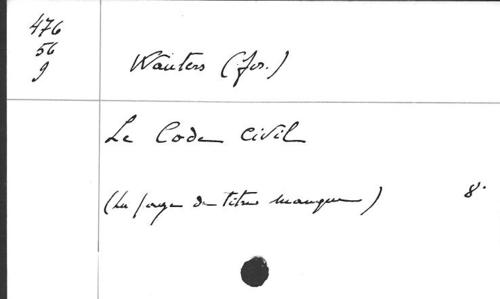 476
56
9
Wauters (Jos.)
Le Code civil
(La page de titre manque) 8°